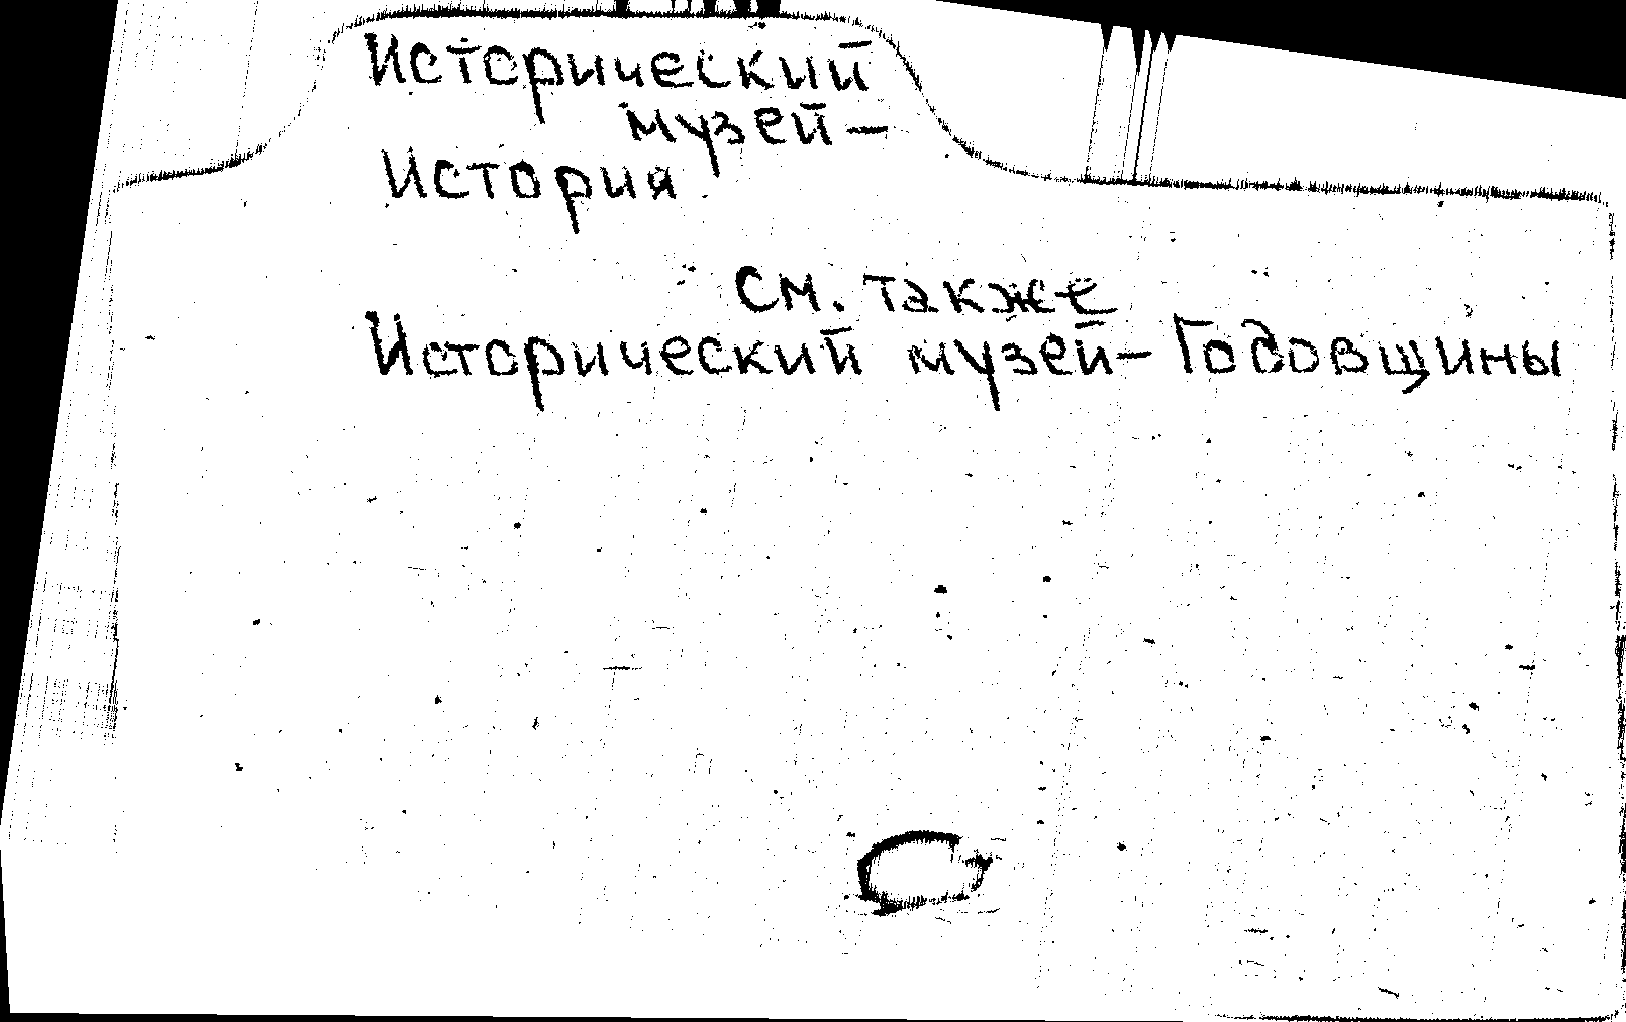 Исторический
музей –
История
См. также
Исторический музей – Годовщины